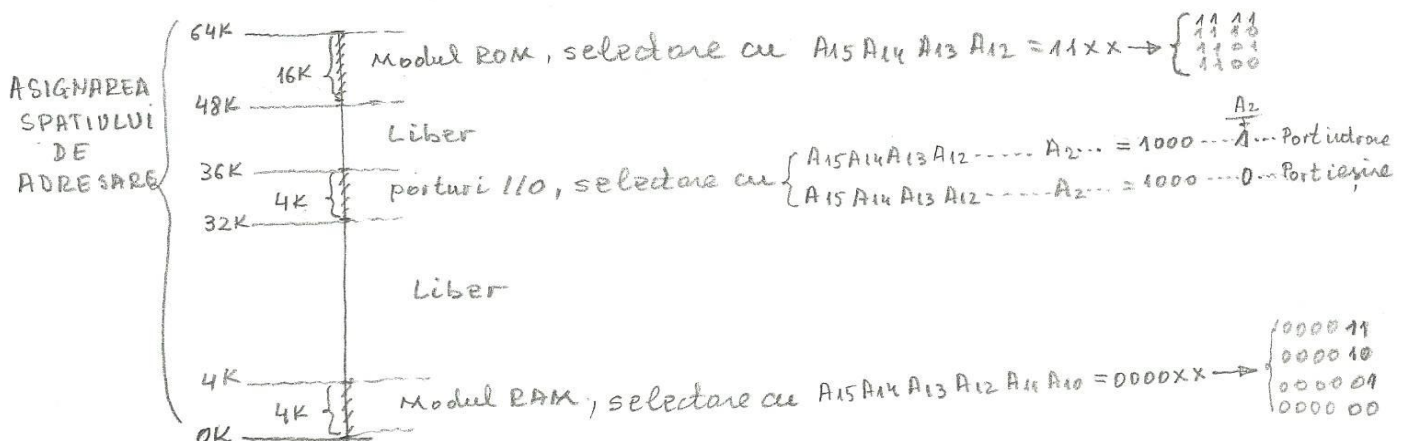 ASIGNAREA
SPATIULUI
DE
ADRESARE
64K
16K
Modul ROM, selectare cu A15 A14 A13 A12 = 11xx →
11 11
11 10
11 01
11 00
48K
Liber
36K
4K
porturi I/O, selectare cu
A2
A15 A14 A13 A12 ------ A2 ... = 1000 ---- 1 ... Port intrare
A15 A14 A13 A12 ------ A2 ... = 1000 ---- 0 ... Port ieșire
32K
Liber
4K
4K
Modul RAM, selectare cu A15 A14 A13 A12 A11 A10 = 0000XX →
0000 11
0000 10
0000 01
0000 00
0K